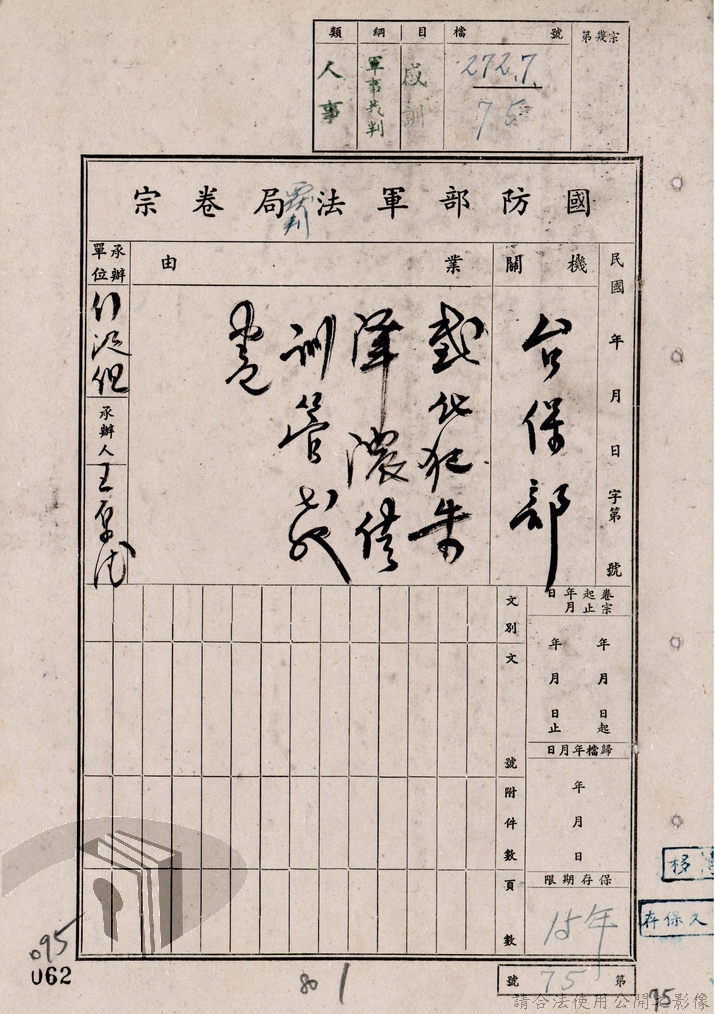 類 綱 目 檔 號 第幾宗
人事 軍事裁判 感訓 272.7
75
國防部軍法局卷宗
覆判
民國 年 月 日 字第 號
機關
台保部
業由
感化犯朱
澤濃借
訓管
卷
承辦單位
承辦人
卷宗起止年月日
年 月 日起
年 月 日止
歸檔年月日
年 月 日
保存期限
15年
文別
文號
附件數
頁數
第 75 號
移
永保存
095
062
80
1
75
請合法使用公開之影像